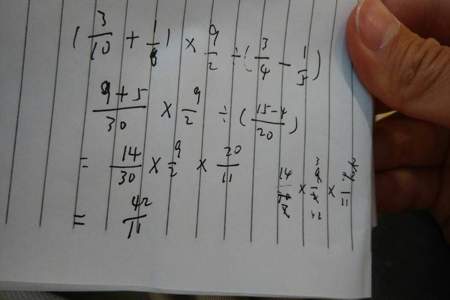 ( 3/10 + 1/6 ) × 9/2 ÷ ( 3/4 − 1/5 )
9+5/30 × 9/2 ÷ ( 15-4/20 )
= 14/30 × 9/2 × 20/11
= 42/11